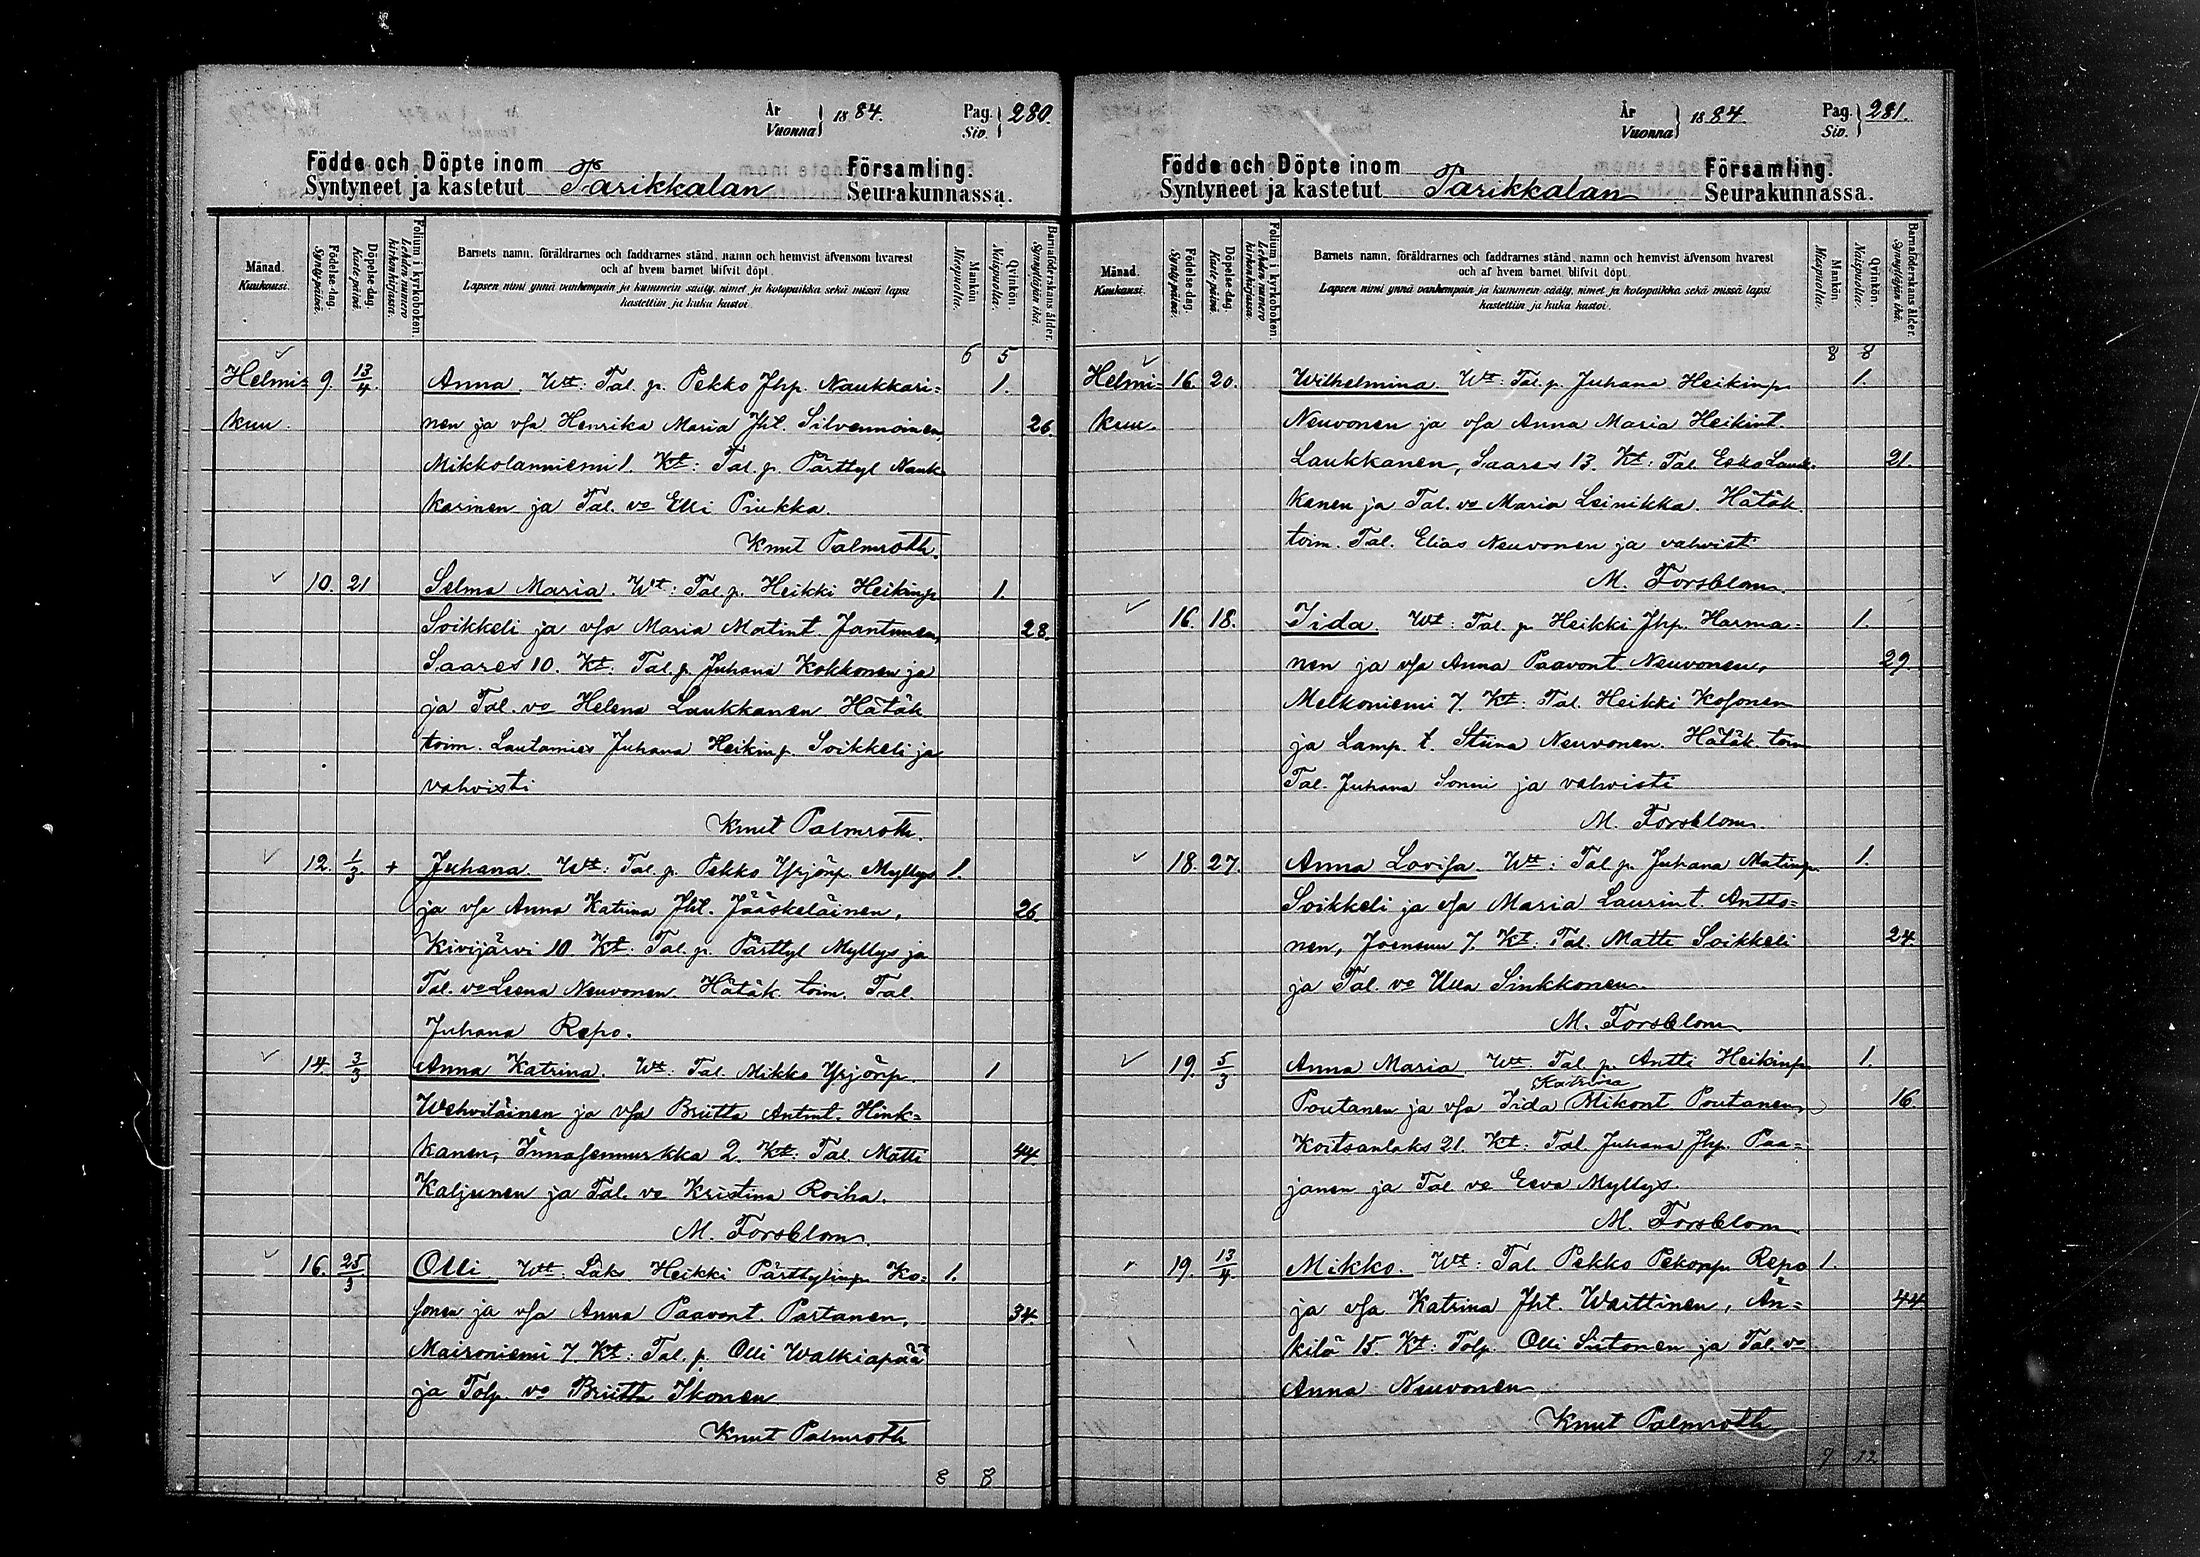 År
Vuonna } 1884.
Pag.
Siv. } 280.
Födde och Döpte inom Församling.
Syntyneet ja kastetut Parikkalan Seurakunnassa.
Månad. Kuukausi.
Födelse-dag. Syntypäivä.
Döpelse-dag. Kastepäivä.
Folium i kyrkoboken. Lehden numero kirkonkirjassa.
Barnets namn, föräldrarnes och faddrarnes stånd, namn och hemvist äfvensom hvarest
och af hvem barnet blifvit döpt.
Lapsen nimi ynnä vanhempain ja kummein sääty, nimet ja kotopaikka sekä missä lapsi
kastettiin ja kuka kastoi.
Mankön. Miespuolia.
Qvinkön. Naispuolia.
Barnaföderskans ålder. Synnyttäjän ikä.
6 5
Helmi= 9. 13/4 Anna. Wtt: Tal. p. Pekko Jhp. Naukkari= 1.
kuu. nen ja vfa Henrika Maria Jht. Silvennoinen, 26.
Mikkolanniemi 1. Kt: Tal. p. Pärttyl Nauk=
karinen ja Tal. vo Elli Piukka.
Knut Palmroth.
10. 21 Selma Maria. Wt: Tal. p. Heikki Heikinp. 1.
Soikkeli ja vfa Maria Matint. Jantunen, 28.
Saares 10. Kt. Tal. p. Juhana Kokkonen ja
ja Tal. vo Helena Laukkanen Hätäk.
toim. Lautamies Juhana Heikinp. Soikkeli ja
vahvisti
Knut Palmroth.
12. 1/3. + Juhana. Wtt: Tal. p. Pekko Yrjönp. Myllys 1.
ja vfa Anna Katrina Jht. Jääskeläinen, 26
Kivijärvi 10 Kt. Tal. p. Pärttyl Myllys ja
Tal. vo Leena Neuvonen. Hätäk. toim. Tal.
Juhana Repo.
14. 3/3 Anna Katrina. Wt. Tal. Mikko Yrjönp. 1
Wehviläinen ja vfa Briitta Antint. Hink=
kanen, Innasenmurkka 2. Kt: Tal. Matti 44.
Kaljunen ja Tal. vo Kristina Roiha.
M. Forsblom.
16. 25/3 Olli Wtt: Läks Heikki Pärttylinp. Ko= 1.
fonen ja vfa Anna Paavont. Partanen, 34.
Maironiemi 7. Kt: Tal. p. Olli Walkiapää
ja Tolp. vo Briitta Ikonen
Knut Palmroth
8 8
År
Vuonna } 1884.
Pag.
Siv. } 281.
Födde och Döpte inom Församling.
Syntyneet ja kastetut Parikkalan Seurakunnassa.
Månad. Kuukausi.
Födelse-dag. Syntypäivä.
Döpelse-dag. Kastepäivä.
Folium i kyrkoboken. Lehden numero kirkonkirjassa.
Barnets namn, föräldrarnes och faddrarnes stånd, namn och hemvist äfvensom hvarest
och af hvem barnet blifvit döpt.
Lapsen nimi ynnä vanhempain ja kummein sääty, nimet ja kotopaikka sekä missä lapsi
kastettiin ja kuka kastoi.
Mankön. Miespuolia.
Qvinkön. Naispuolia.
Barnaföderskans ålder. Synnyttäjän ikä.
8 8
Helmi= 16. 20. Wilhelmina Wtt: Tal. p. Juhana Heikinp. 1.
kuu. Neuvonen ja vfa Anna Maria Heikint.
Laukkanen, Saares 13. Kt: Tal. Eska Lauk= 21.
kanen ja Tal. vo Maria Leinikka. Hätäk.
toim. Tal. Elias Neuvonen ja vahvist
M. Forsblom.
16. 18. Iida Wt: Tal. p. Heikki Jhp. Harma= 1.
nen ja vfa Anna Paavont. Neuvonen, 29.
Melkoniemi 7. Kt: Tal. Heikki Kofonen
ja Lamp. t. Stiina Neuvonen. Hätäk. toim
Tal. Juhana Sonni ja vahvisti
M. Forsblom.
18. 27. Anna Lovifa. Wtt: Tal. p. Juhana Matinp. 1.
Soikkeli ja vfa Maria Laurint. Antto=
nen, Joensuu 7. Kt: Tal. Matti Soikkeli 24
ja Tal. vo Ulla Sinkkonen.
M. Forsblom
19. 5/3 Anna Maria Wtt. Tal. p. Antti Heikinp. 1.
Katrina
Poutanen ja vfa Iida Mikont. Poutanen, 16.
Koitsanlaks 21. Kt: Tal. Juhana Jhp. Paa=
janen ja Tal. vo Eeva Myllys.
M. Forsblom
19. 13/4 Mikko. Wt: Tal. Pekko Pekonp. Repo 1.
ja vfa Katrina Jht. Waittinen, An= 44
kilä 15. Kt: Tolp. Olli Siitonen ja Tal. vo
Anna Neuvonen
Knut Palmroth
7 12